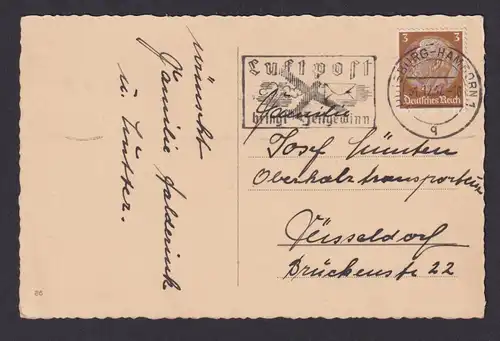 wünscht
Familie
u. Hütter.
Luftpost
bringt Zeitgewinn
3 3
Deutsches Reich
DUISBURG-HAMBORN 1
q
Familie
Josef Hünten
Oberholztransporteur
Düsseldorf
Brückenstr 22